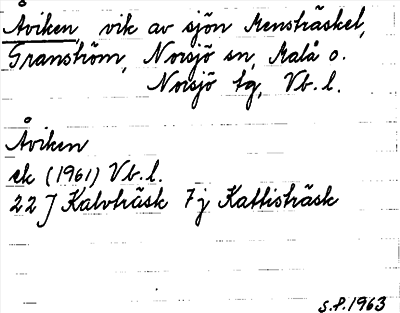 Åviken, vik av sjön Mensträsket,
Granström, Norsjö sn, Malå o.
Norsjö tg, Vb. l.
Åviken
ek (1961) Vb. l.
22 J Kalvträsk 7 j Kattisträsk
S.P. 1963